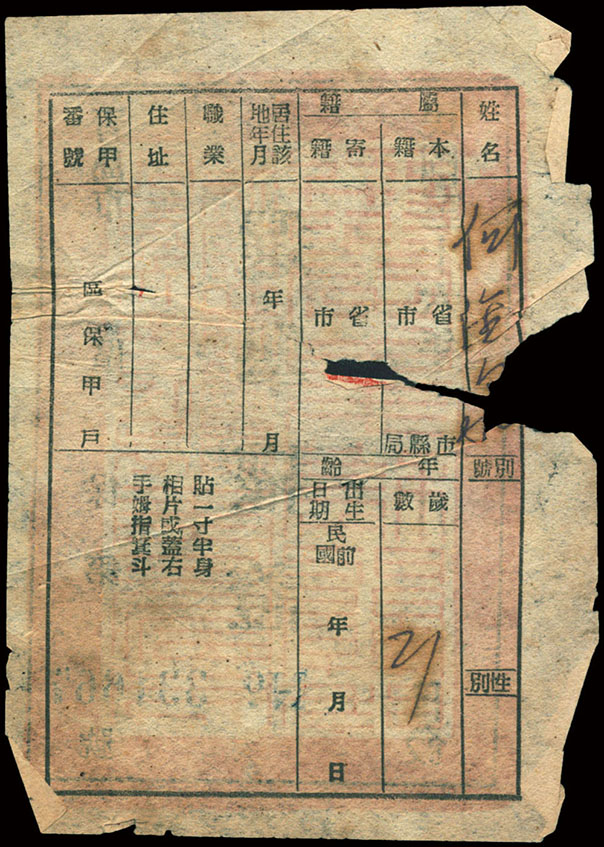 姓名
何
別號
性別
屬籍
本籍
省市
市縣局
寄籍
省市
年齡
歲數
21
出生日期
民前國
年月日
居住該地年月
年月
職業
住址
保甲番號
區保甲戶
貼一寸半身
相片或蓋右
手姆指箕斗